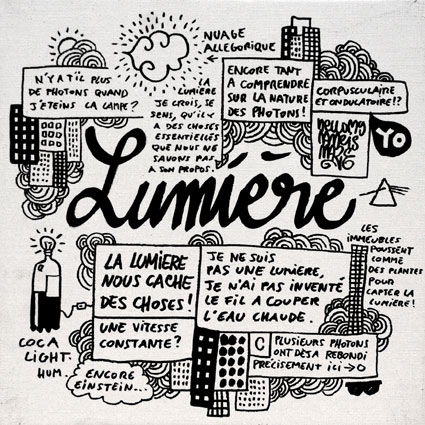 NUAGE
ALLEGORIQUE
N'Y A T'IL PLUS
DE PHOTONS QUAND
J'ETEINS LA LAMPE?
LA
LUMIERE
JE CROIS, SE
SENS, QU'IL Y
A DES CHOSES
ESSENTIELLES
QUE NOUS NE
SAVONS PAS
A SON PROPOS.
ENCORE TANT
A COMPRENDRE
SUR LA NATURE
DES PHOTONS!
CORPUSCULAIRE
ET ONDULATOIRE!?
YO
Lumière
LES
IMMEUBLES
POUSSENT
COMME
DES PLANTES
POUR
CAPTER LA
LUMIERE!
LA LUMIERE
NOUS CACHE
DES CHOSES!
UNE VITESSE
CONSTANTE?
JE NE SUIS
PAS UNE LUMIERE,
JE N'AI PAS INVENTÉ
LE FIL A COUPER
L'EAU CHAUDE.
C
PLUSIEURS PHOTONS
ONT DEJA REBONDI
PRÉCISEMENT ICI→O
COCA
LIGHT.
HUM.
ENCORE
EINSTEIN...